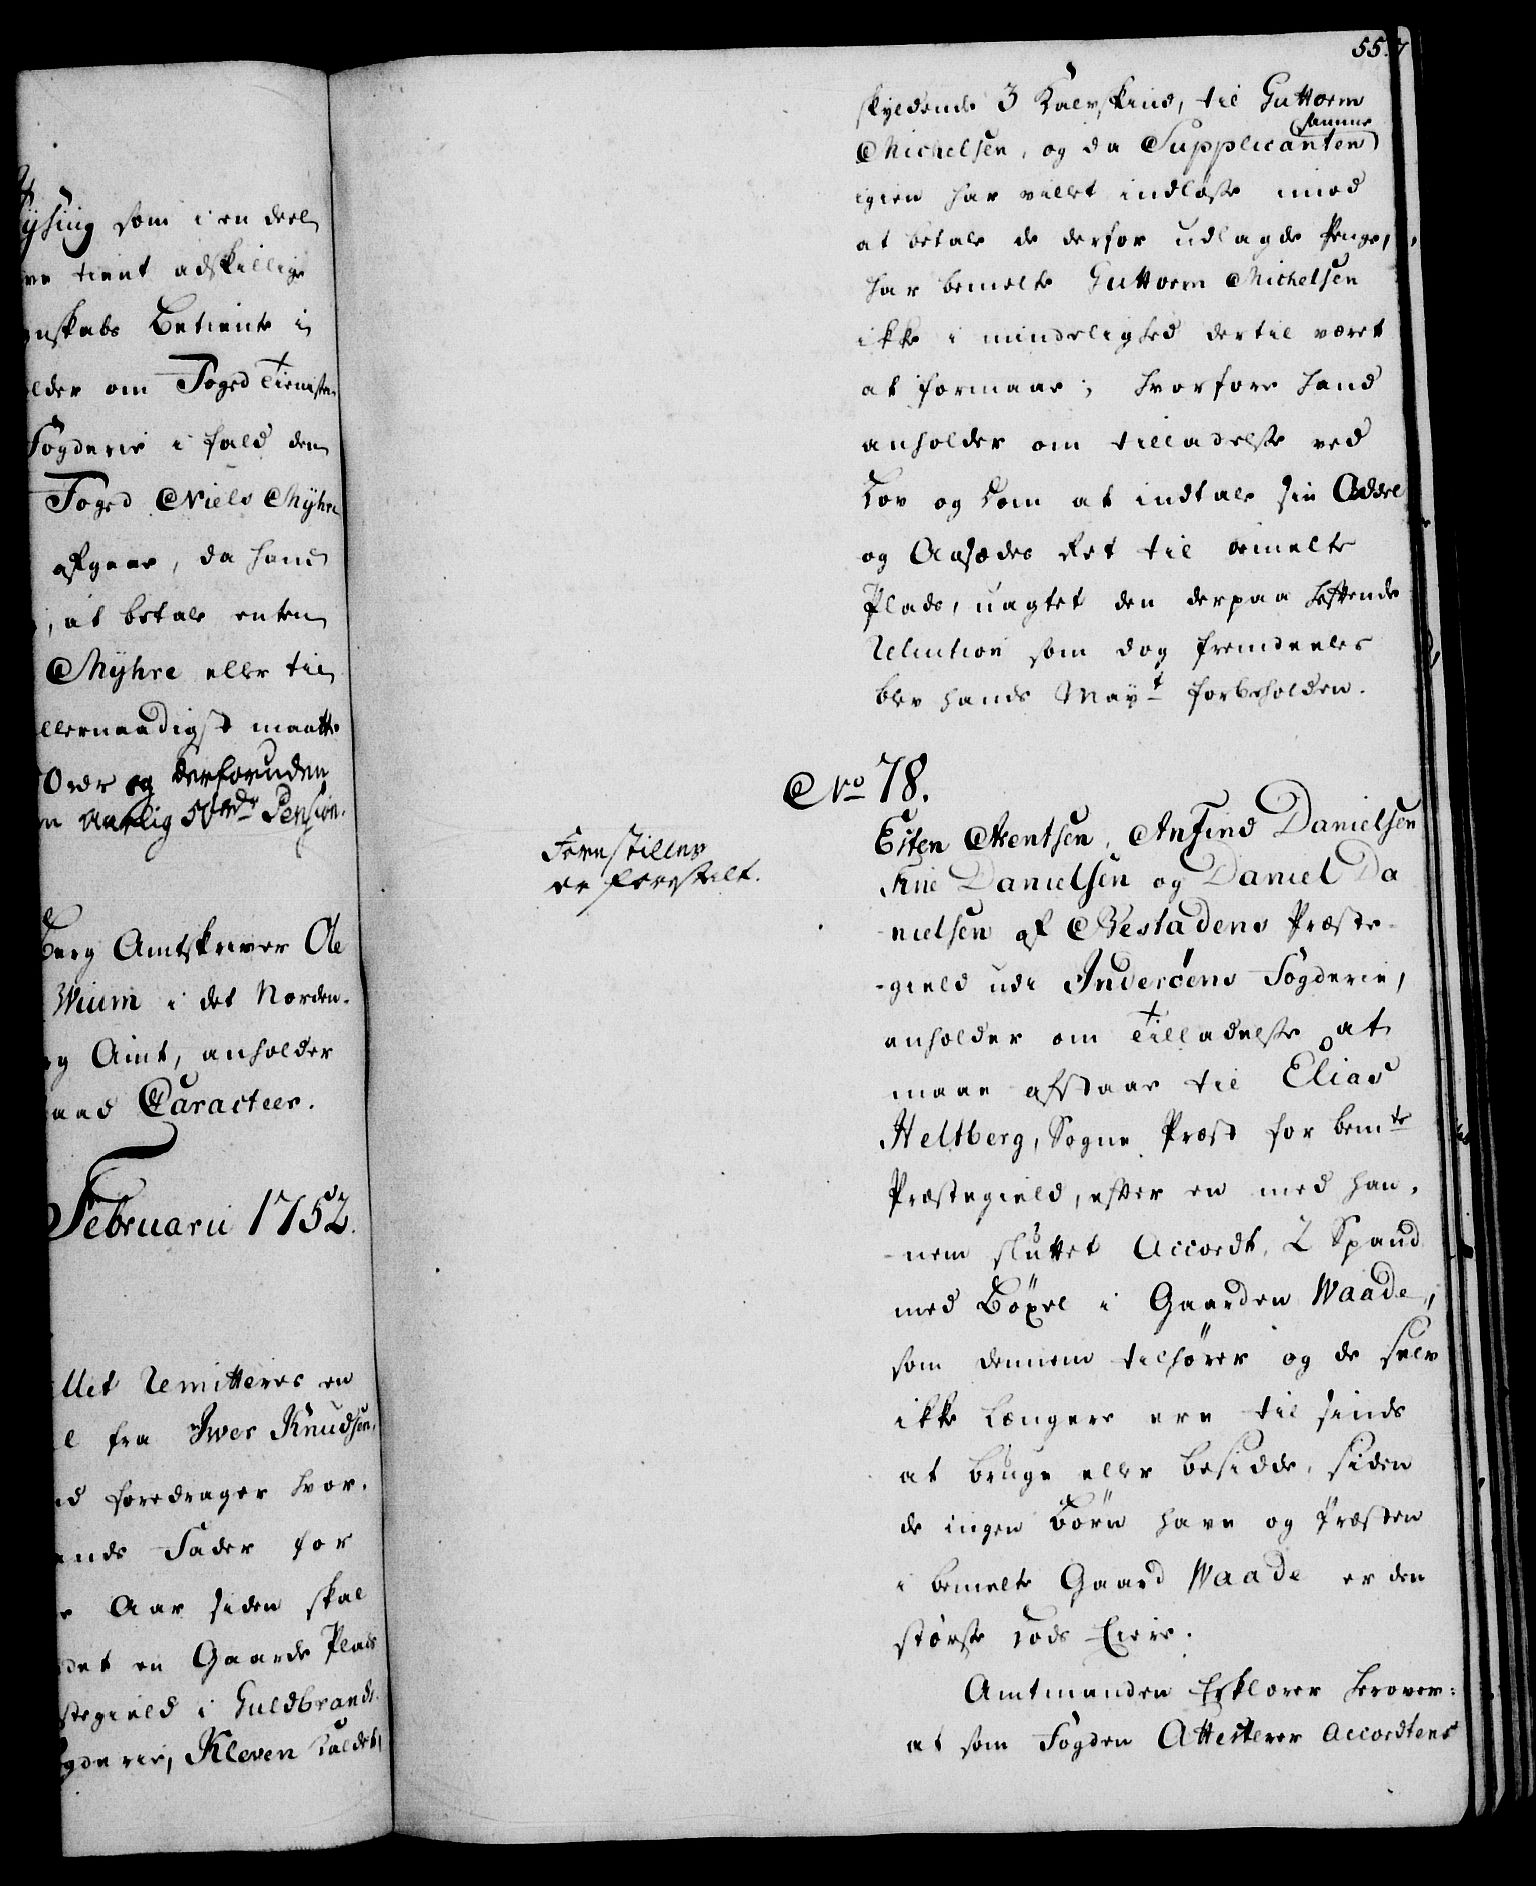 ÿsing som i en deel
tient adskillige
nskabs Betiente i
lder om Foged Tieniste
Fogderie i fald den
Foged Niels Mÿhre
afgaae, da hand
, at betale enten
Mÿhre eller til
llernaadigst maatte
Ordr og derforuden
aarlig 50 rdr Pension.
berg Amtskriver Ole
Wium i det Norden-
rg Amt, anholder
raad Caracteer.
Februarii 1752.
llet Remitteres en
l fra Iver Knudsen,
nd foredrager hvor-
ands Fader for
Aar siden skal
det en Gaards Plads
stegield i Guldbrands-
gderie, Kleven kaldet,
557
skyldende 3 Kalvskind, til Guttorm
Michelsen, og da Supplicanten samme
igien har villet indløse imod
at betale de derfor udlagde Penge,
har bemelte Guttorm Michelsen
ikke i mindelighed dertil været
at formaae; hvorfore hand
anholder om tilladelse ved
Lov og Dom at indtale sin Oddel
og Aasædes Ret til ermelte
Plads, uagtet den derpaa heftende
Reluition som dog fremdeeles
blev hands Mayt forbeholden.
No 78.
Forestilles
er forestilt.
Esten Arentsen, Anfind Danielsen
Fine Danielsen og Daniel Da
nielsen af Bestadens Præste-
-gield udi Inderöens Fögderie,
anholder om Tilladelse at
maae afstaae til Elias
Heltberg, Sogne Præst for bemte
Præstegield, efter en med han-
-nem sluttet Accordt, 2 Spand
med Böxel i Gaarden Waade,
som dennem tilhörer og de selv
ikke længere ere til sinds
at bruge eller besidde, siden
de ingen Börn have og Præsten
i bemelte Gaard Waade er den
störste Lods Eiere.
Amtmanden Erklærer herover:
at som Fogden Attesterer Accordtens